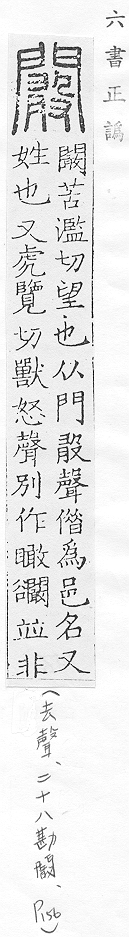 六書正譌
闞
闞苦濫切望也从門敢聲借為邑名又
姓也又虎覽切獸怒聲別作瞰並非
(去聲、二十八勘闞、P156)